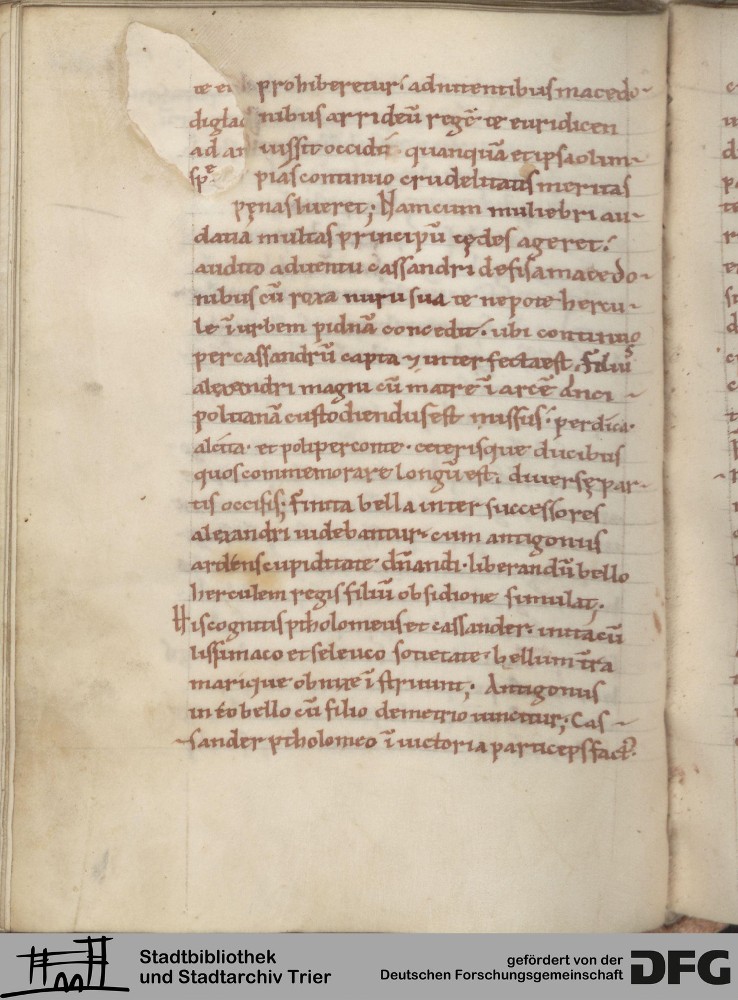 te er prohiberetur; adnitentibus macedo-
digla nibus arrideū regē te euridicen
ad ar iussit occidi quanquā et ipsa olim-
spe pias continuo crudelitatis meritas
pęnas lueret; Nam cum muliebri au-
datia multas principū cędes ageret;
audito aduentu cassandri defisa macedo-
nibus cū roxa nuru sua te nepote hercu-
le ī urbem pidnā concedit. ubi continuo
per cassandrū capta ⁊ interfecta est. Filius
alexandri magni cū matre ī arcē anci -
politanā custodiendus est missus. perdica.
alceta. et poliperconte. ceterisque ducibus
quos commemorare longū est. diuersę par-
tis occisis; Finita bella inter successores
alexandri uidebantur. cum antigonus
ardens cupiditate dn̄andi. liberandū bello
herculem regis filiū obsidione simulat;
His cognitis ptholomeus et cassander. inita cū
lissimaco et seleuco societate. bellum t̄ra
marique obnixe ī struunt; Antigonus
in eo bello cū filio demetrio uincitur; Cas -
sander ptholomeo ī uictoria particeps fact᾿.
Stadtbibliothek
und Stadtarchiv Trier
gefördert von der
Deutschen Forschungsgemeinschaft
DFG